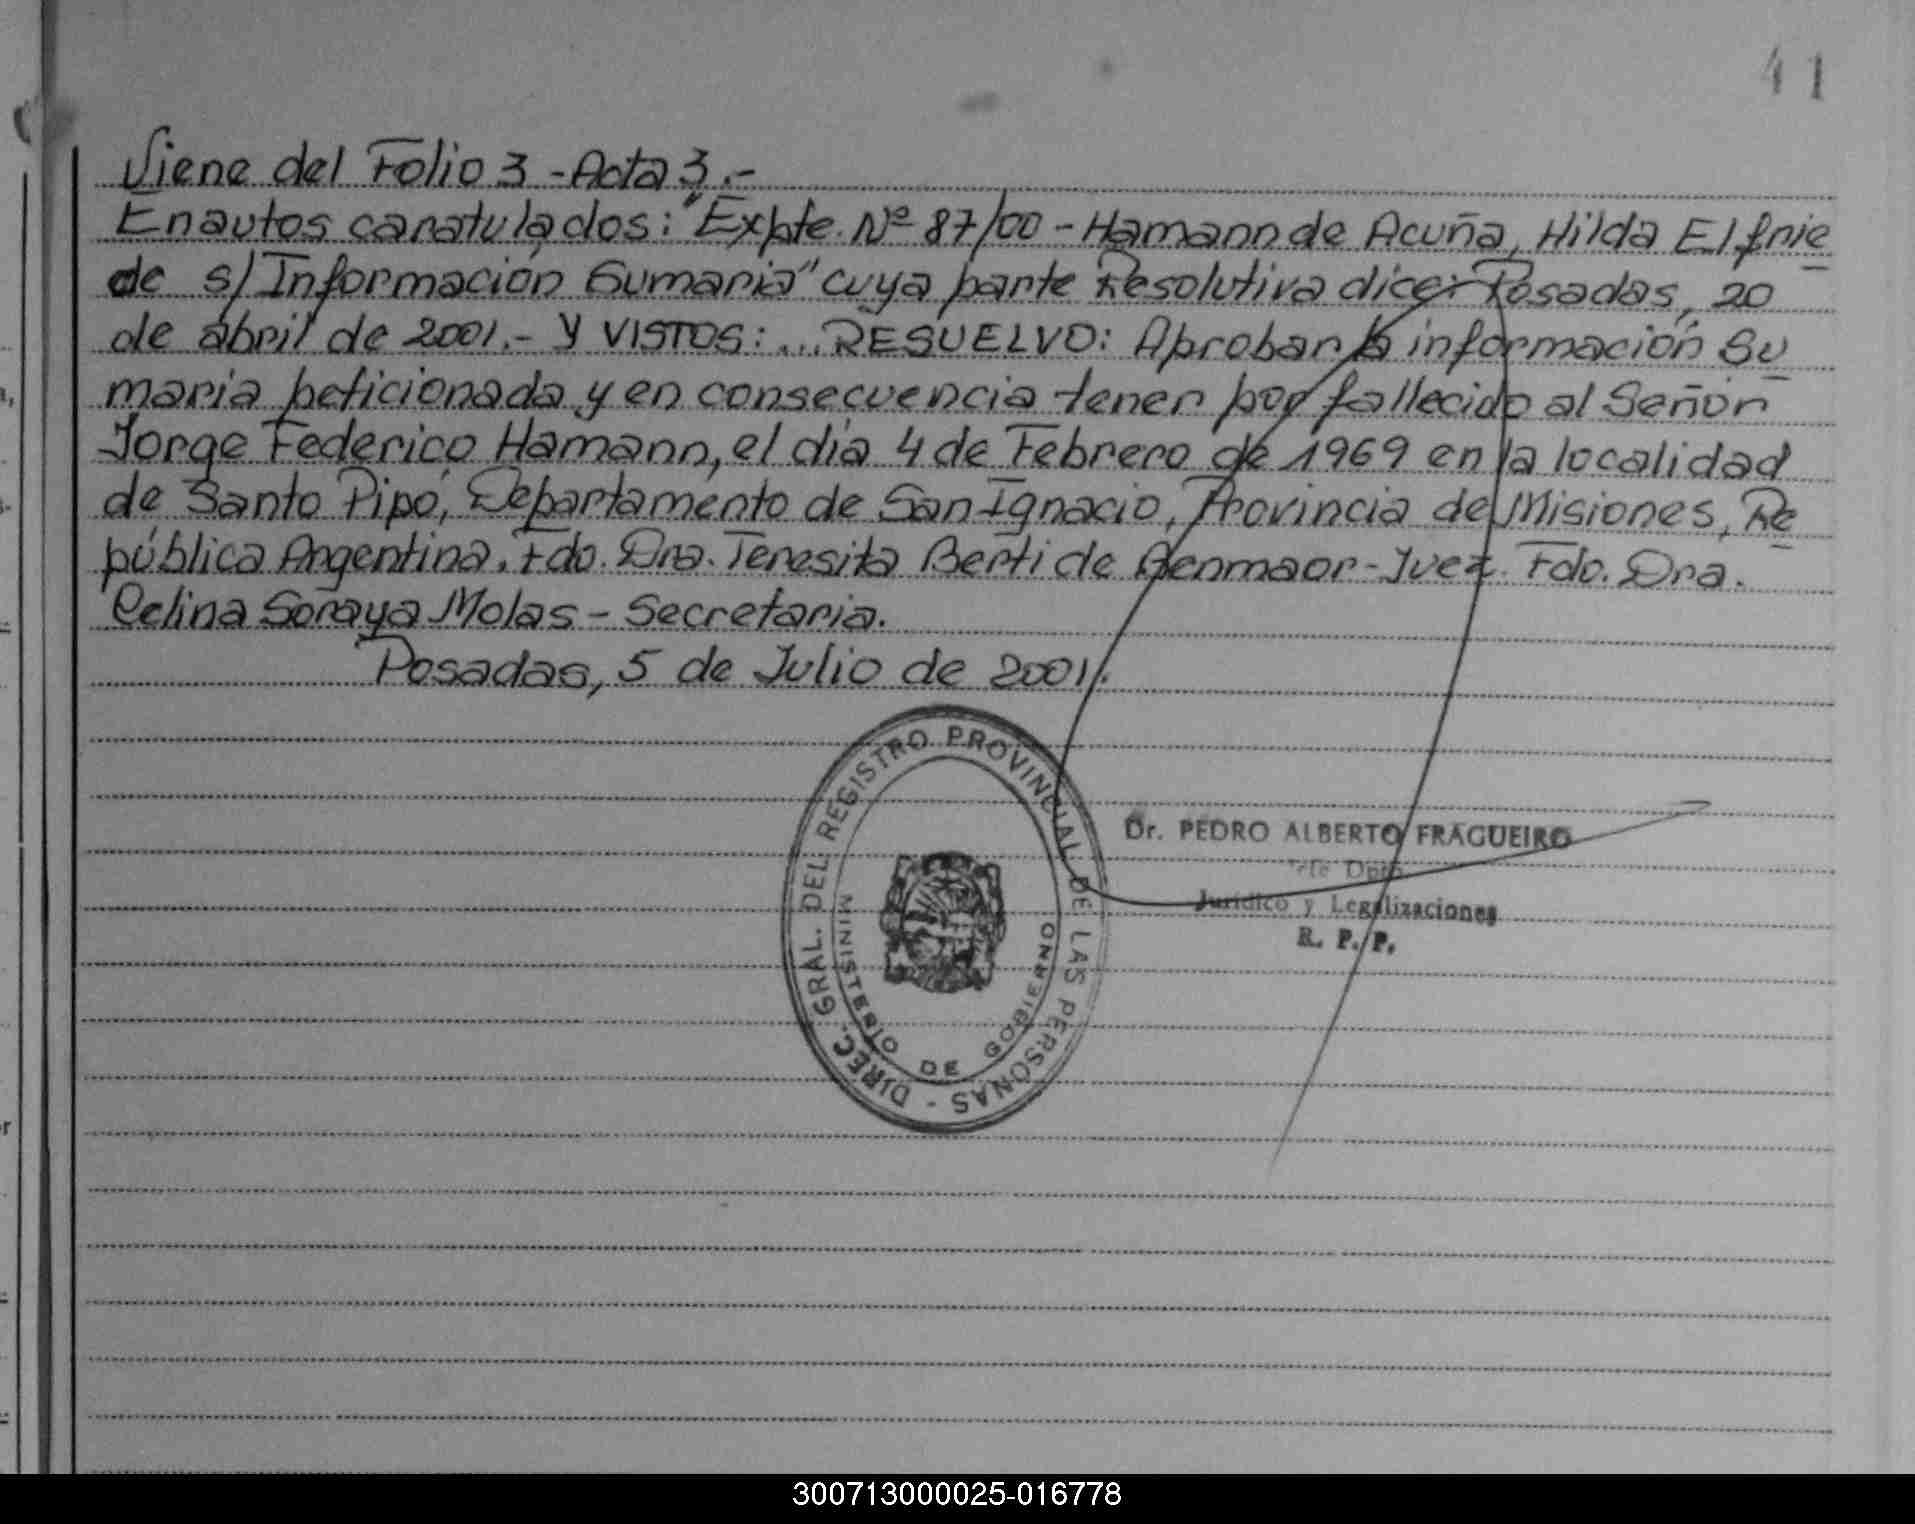 41
Viene del Folio 3 - Acta 3.-
En autos caratulados: "Expte. Nº 87/00 - Hamann de Acuña, Hilda Elfrie
de s/Información Sumaria" cuya parte Resolutiva dice: Posadas, 20
de abril de 2001.- Y VISTOS:... RESUELVO: Aprobar la información Su
maria peticionada y en consecuencia tener por fallecido al Señor
Jorge Federico Hamann, el día 4 de Febrero de 1969 en la localidad
de Santo Pipó, Departamento de San Ignacio, Provincia de Misiones, Re
pública Argentina. Fdo. Dra. Teresita Berti de Benmaor - Juez. Fdo. Dra.
Celina Soraya Molas - Secretaria.
Posadas, 5 de Julio de 2001.
DIREC. GRAL. DEL REGISTRO PROVINCIAL DE LAS PERSONAS -
MINISTERIO DE GOBIERNO
Dr. PEDRO ALBERTO FRAGUEIRO
Dpto.
Jurídico y Legalizaciones
R. P. P.
300713000025-016778